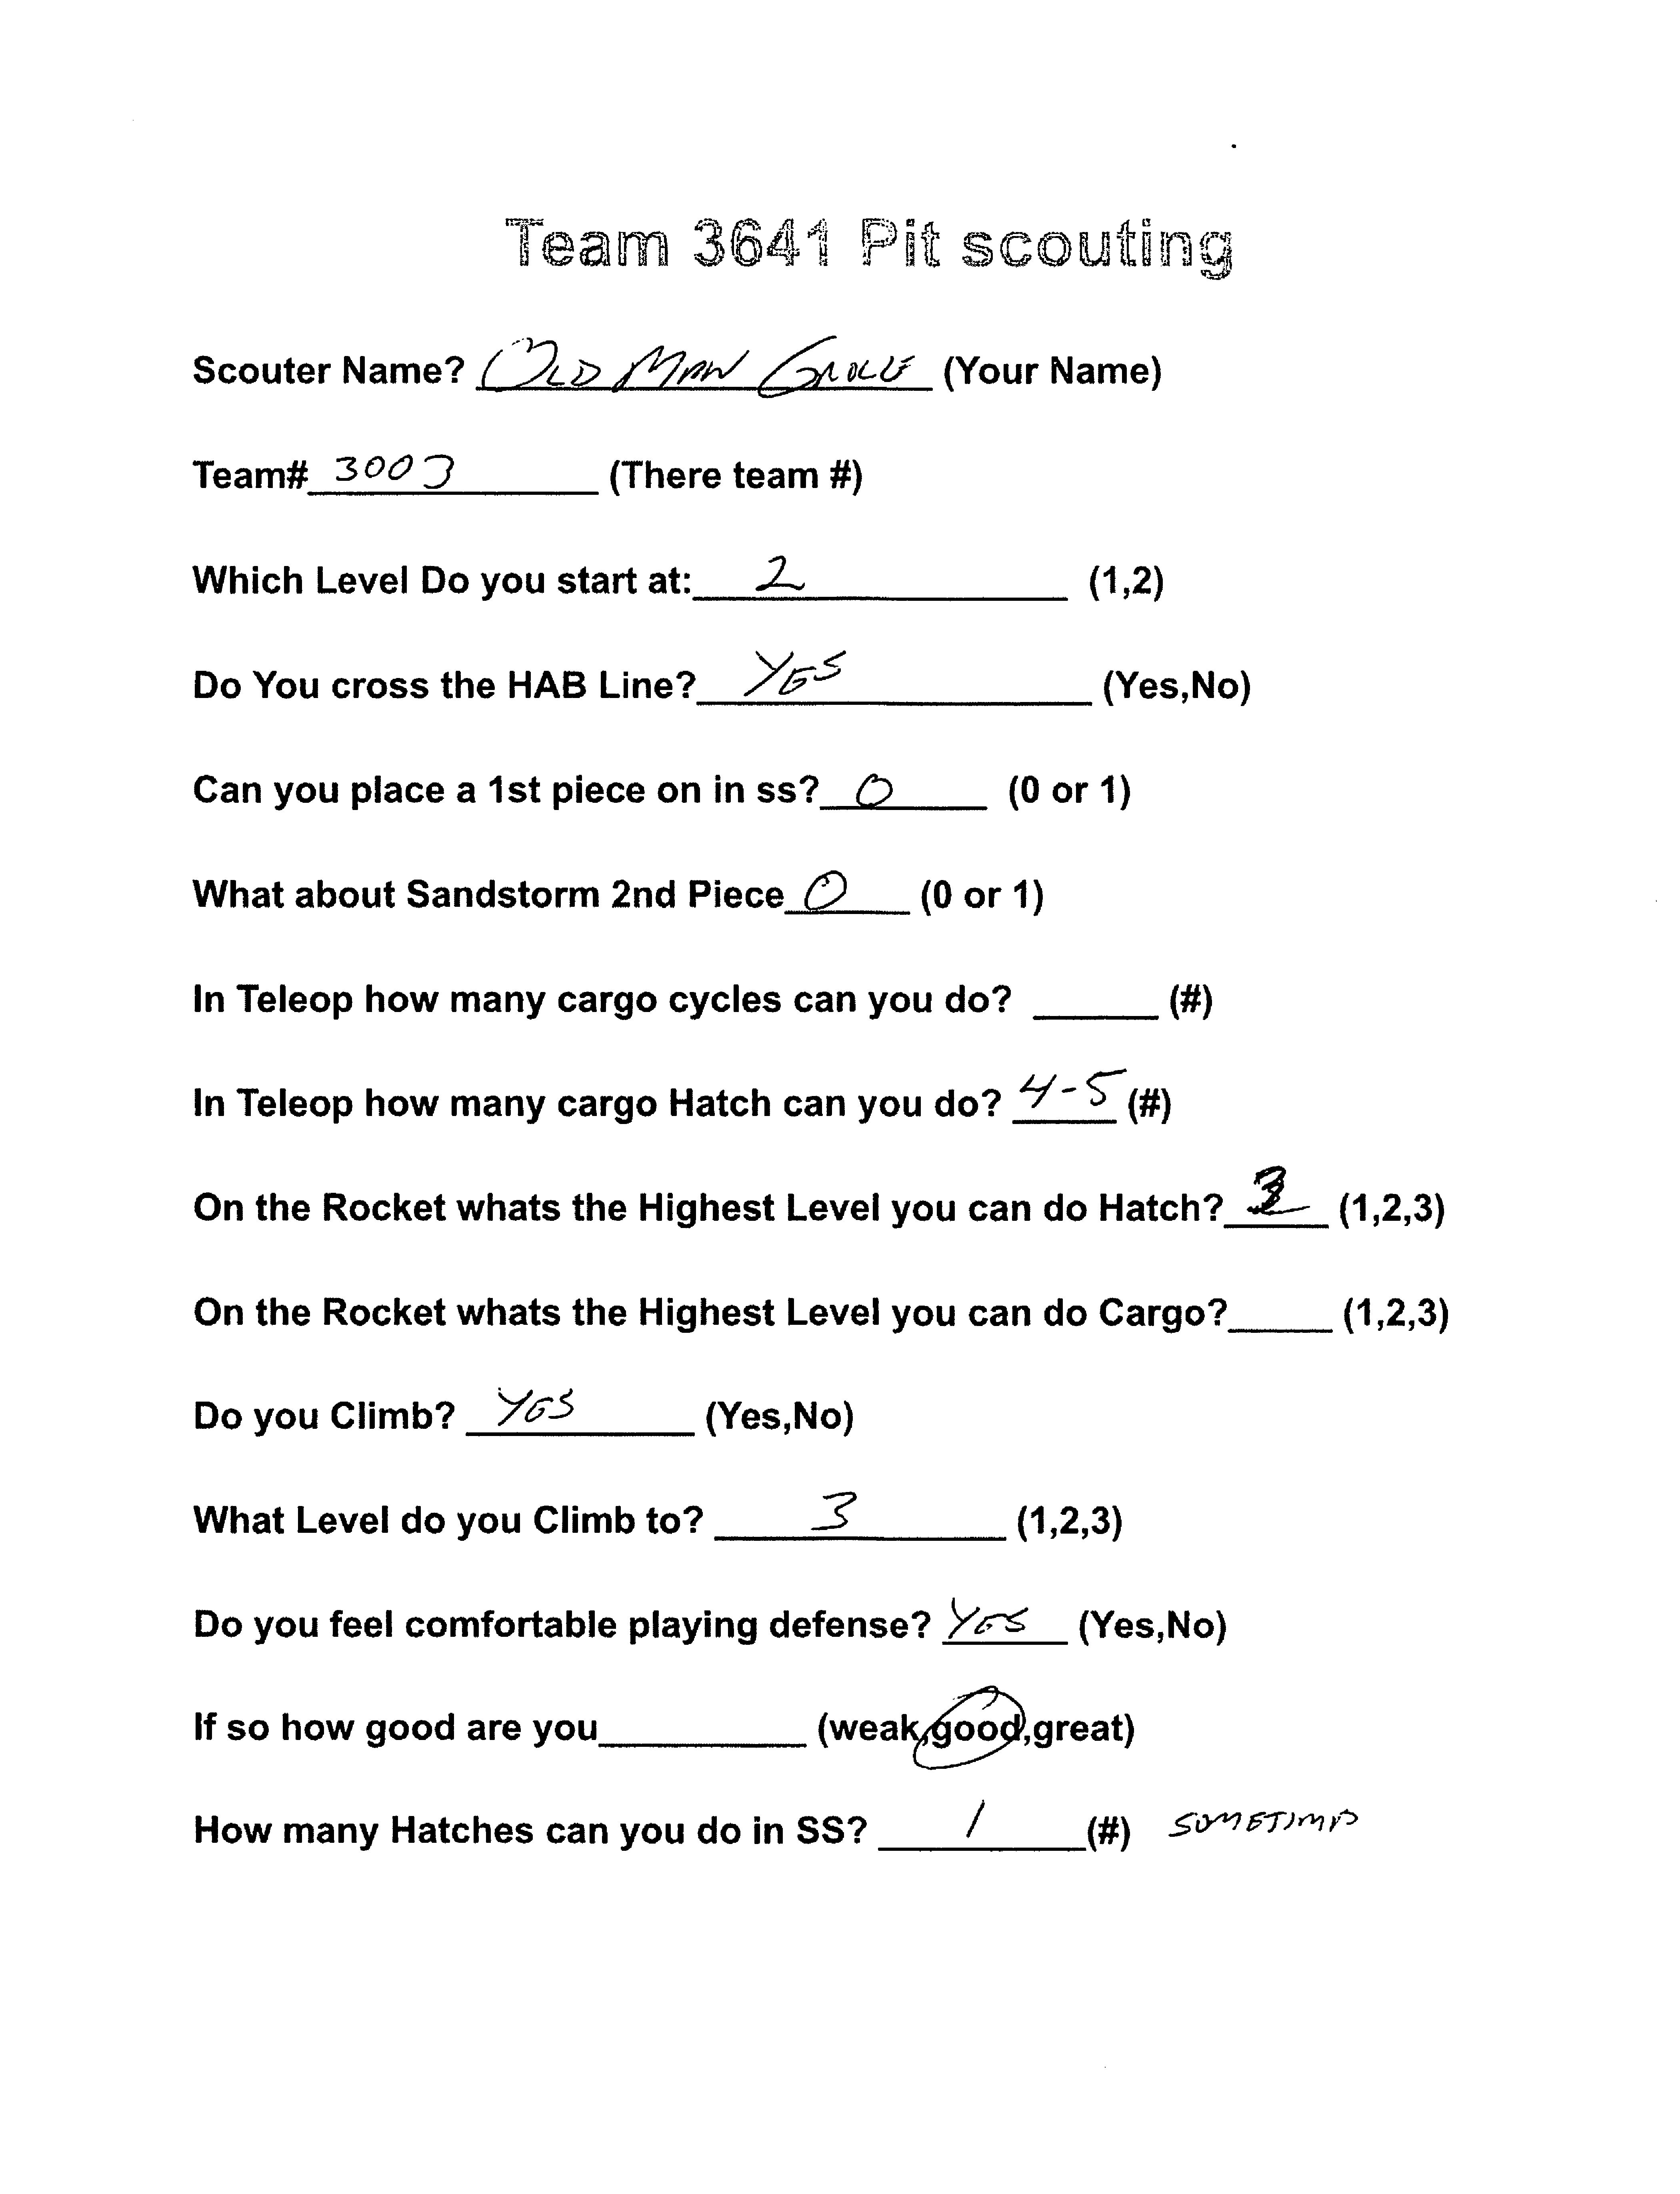 Team 3641 Pit scouting
Scouter Name? OLD MAN (Your Name)
Team# 3003 (There team #)
Which Level Do you start at: 2 (1,2)
Do You cross the HAB Line? YES (Yes,No)
Can you place a 1st piece on in ss? 0 (0 or 1)
What about Sandstorm 2nd Piece 0 (0 or 1)
In Teleop how many cargo cycles can you do? ______ (#)
In Teleop how many cargo Hatch can you do? 4-5 (#)
On the Rocket whats the Highest Level you can do Hatch? (1,2,3)
On the Rocket whats the Highest Level you can do Cargo?_____ (1,2,3)
Do you Climb? YES (Yes,No)
What Level do you Climb to? 3 (1,2,3)
Do you feel comfortable playing defense? YES (Yes,No)
If so how good are you__________ (weak,good,great)
How many Hatches can you do in SS? 1 (#) SOMETIMES